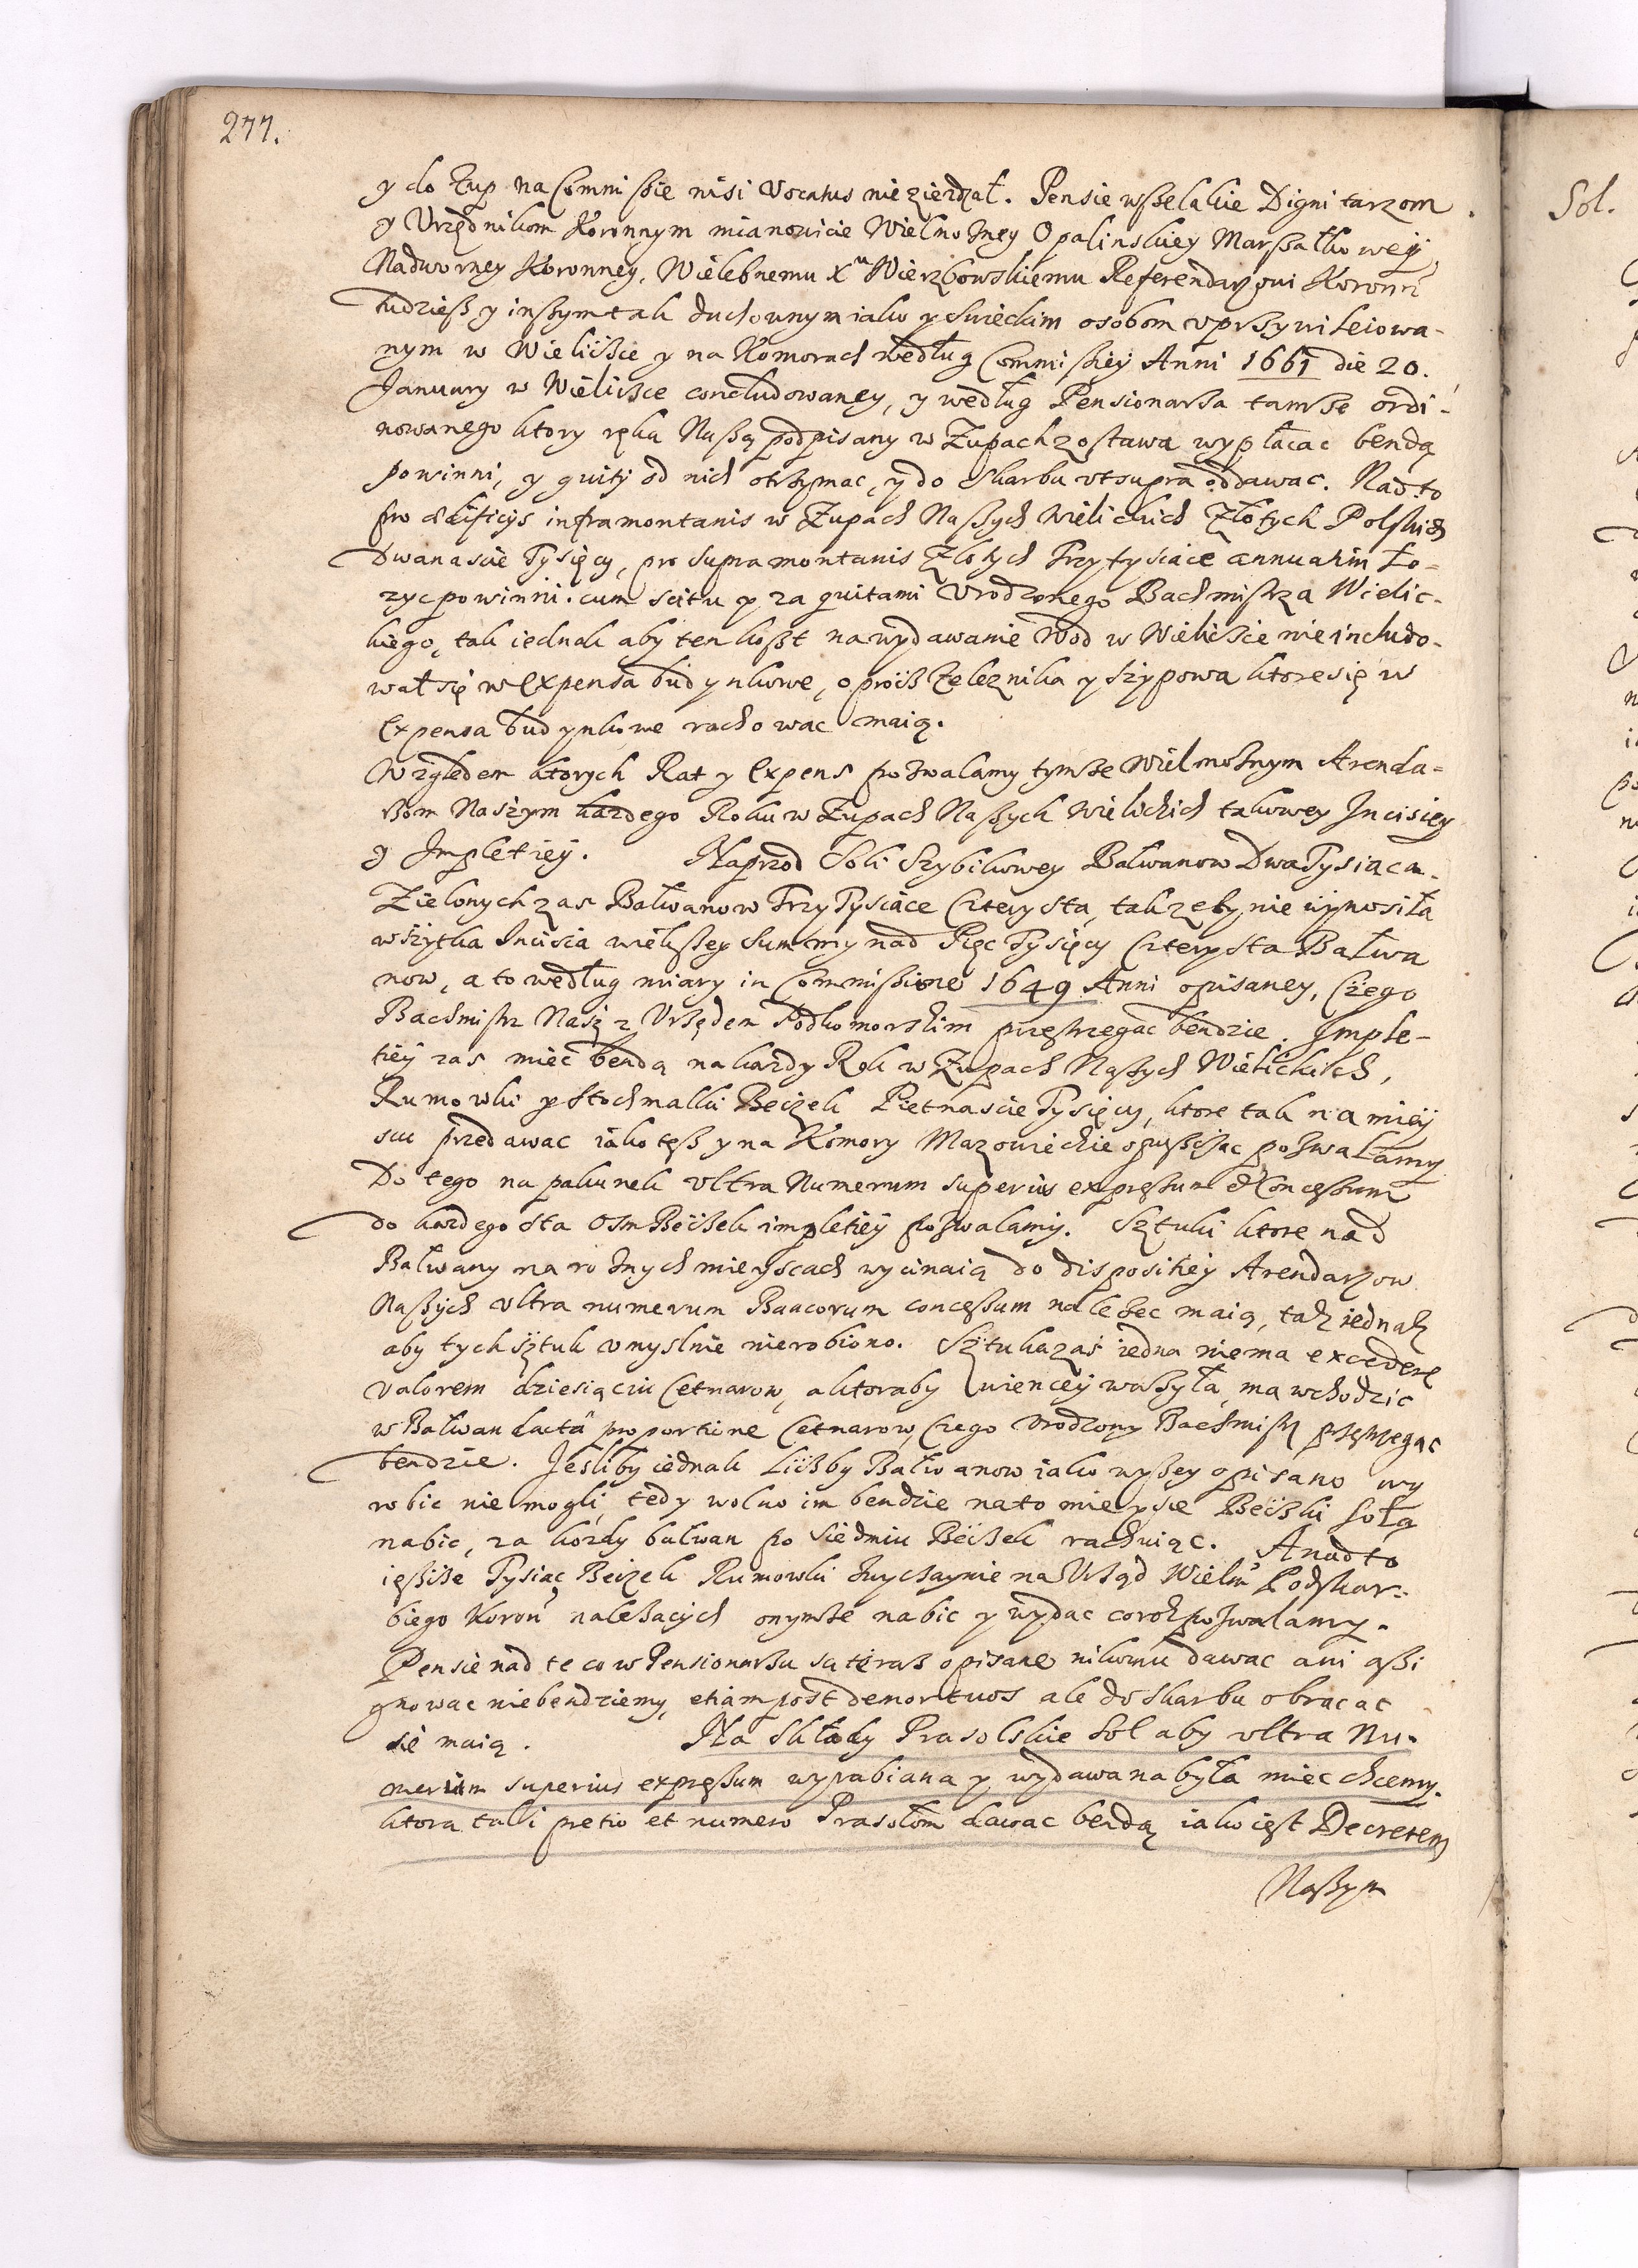 277.
y do Żup na Commißie nisi Vocatus niezierdzał. Pensie wßelakie Dignitarzom
y Vrzędnikom Koronnym mianowicie Wielmożney Opalinskiey Marßałkowey
Nadworney Koronney, Wielebnemu Xu Wierzbowskiemu Referendarzowi Koronn
tudzieß y inßym tak duchownym iako y swieckim osobom vprzywileiowa-
nym w Wieliczce y na Komorach według Commißiey Anni 1661 die 20.
January w Wieliczce concludowaney, y według Pensionarza tamże ordi-
nowanego ktory ręką Naßą podpisany w Żupach zostawa wypłacac bendą
powinni, y quity od nich otrzymac, y do Skarbu vt supra oddawac. Nad to
pro ædificijs inframontanis w Żupach Naßych Wielickich Złotych Polskich
Dwanascie Tysięcy, pro supramontanis Złotych Trzy tysiące annuatim ło-
zyc powinni. cum scitu y za quitami Vrodzonego Bachmistrza Wielic-
kiego, tak iednak aby ten koßt na wydawanie Wod w Wieliczce nie includo-
wał się w expensa budynkowe, oprócz Zeleznika y szypowa ktore się w
Expensa budynkowe rachowac maią.
Względem ktorych Rat y Expens pozwalamy tymże Wielmożnym Arenda-
rzom Naszym kazdego Roku w Żupach Naßych Wielickich takowey Incisiey
y Impletiey. Naprzod Soli Szybikowey Bałwanow Dwa Tysiąca.
Zielonych zas Bałwanow Trzy Tysiące Cztery sta, tak zeby nie wynosiła
wszytka Incisia więkßey Summy nad Pięc Tysięcy Czterysta Bałwa
now, a to według miary in Commißione 1649 Anni opisaney, Czego
Bachmistrz Nasz z Vrzędem Podkomorskim przestrzegac bendzie. Imple-
tiey zas miec bendą na kazdy Rok w Żupach Naßych Wielickich,
Rumowki y Stochmalki Beczek Pietnascie Tysięcy, ktore tak na miey
scu przedawac iako teß y na Komory Mazowieckie opußczac pozwalamy
Do tego na pakunek vltra Numerum superius expreßum & Conceßum
do kazdego sta Osm Beczek impletiey pozwalamy. Sztuki ktore nad
Bałwany na roznych mieyscach wycinaią do dispositiey Arendarzow
Naßych vltra numerum Bancorum conceßum nalezec maią, tak iednak
aby tych sztuk vmyslnie nierobiono. Sztuka zaś iedna niema excedere
Valorem dziesiąciu Cetnarow, a ktoraby wiencey ważyła, ma wchodzic
w Bałwan datâ proportione Cetnarow, Czego Vrodzony Bachmistrz przestrzegac
bendzie. Jesliby iednak liczby Bałwanow iako wyßey opisano wy
robic nie mogli, tedy wolno im bendzie na to mieysce Beczki solą
nabic, za kozdy bałwan po siedmiu Beczek rachuiąc. A nad to
ießcze Tysiąc Beczek Rumowki zwyczaynie na Vrząd Wielmo Podskar-
biego Koron nalezacych onymże nabic y wydac corok pozwalamy.
Pensie nad te co w Pensionarzu są teraz opisane nikomu dawac ani aßi
gnowac niebendziemy, etiam post demortuos ale do skarbu obracac
sie maią. Na Składy Prasolskie sol aby vltra Nu-
merum superius expreßum wyrabiana y wydawana była miec chcemy.
ktora tali pretio et numero Prasołom dawac bendą iako iest Decretem
Naßym
Sol.